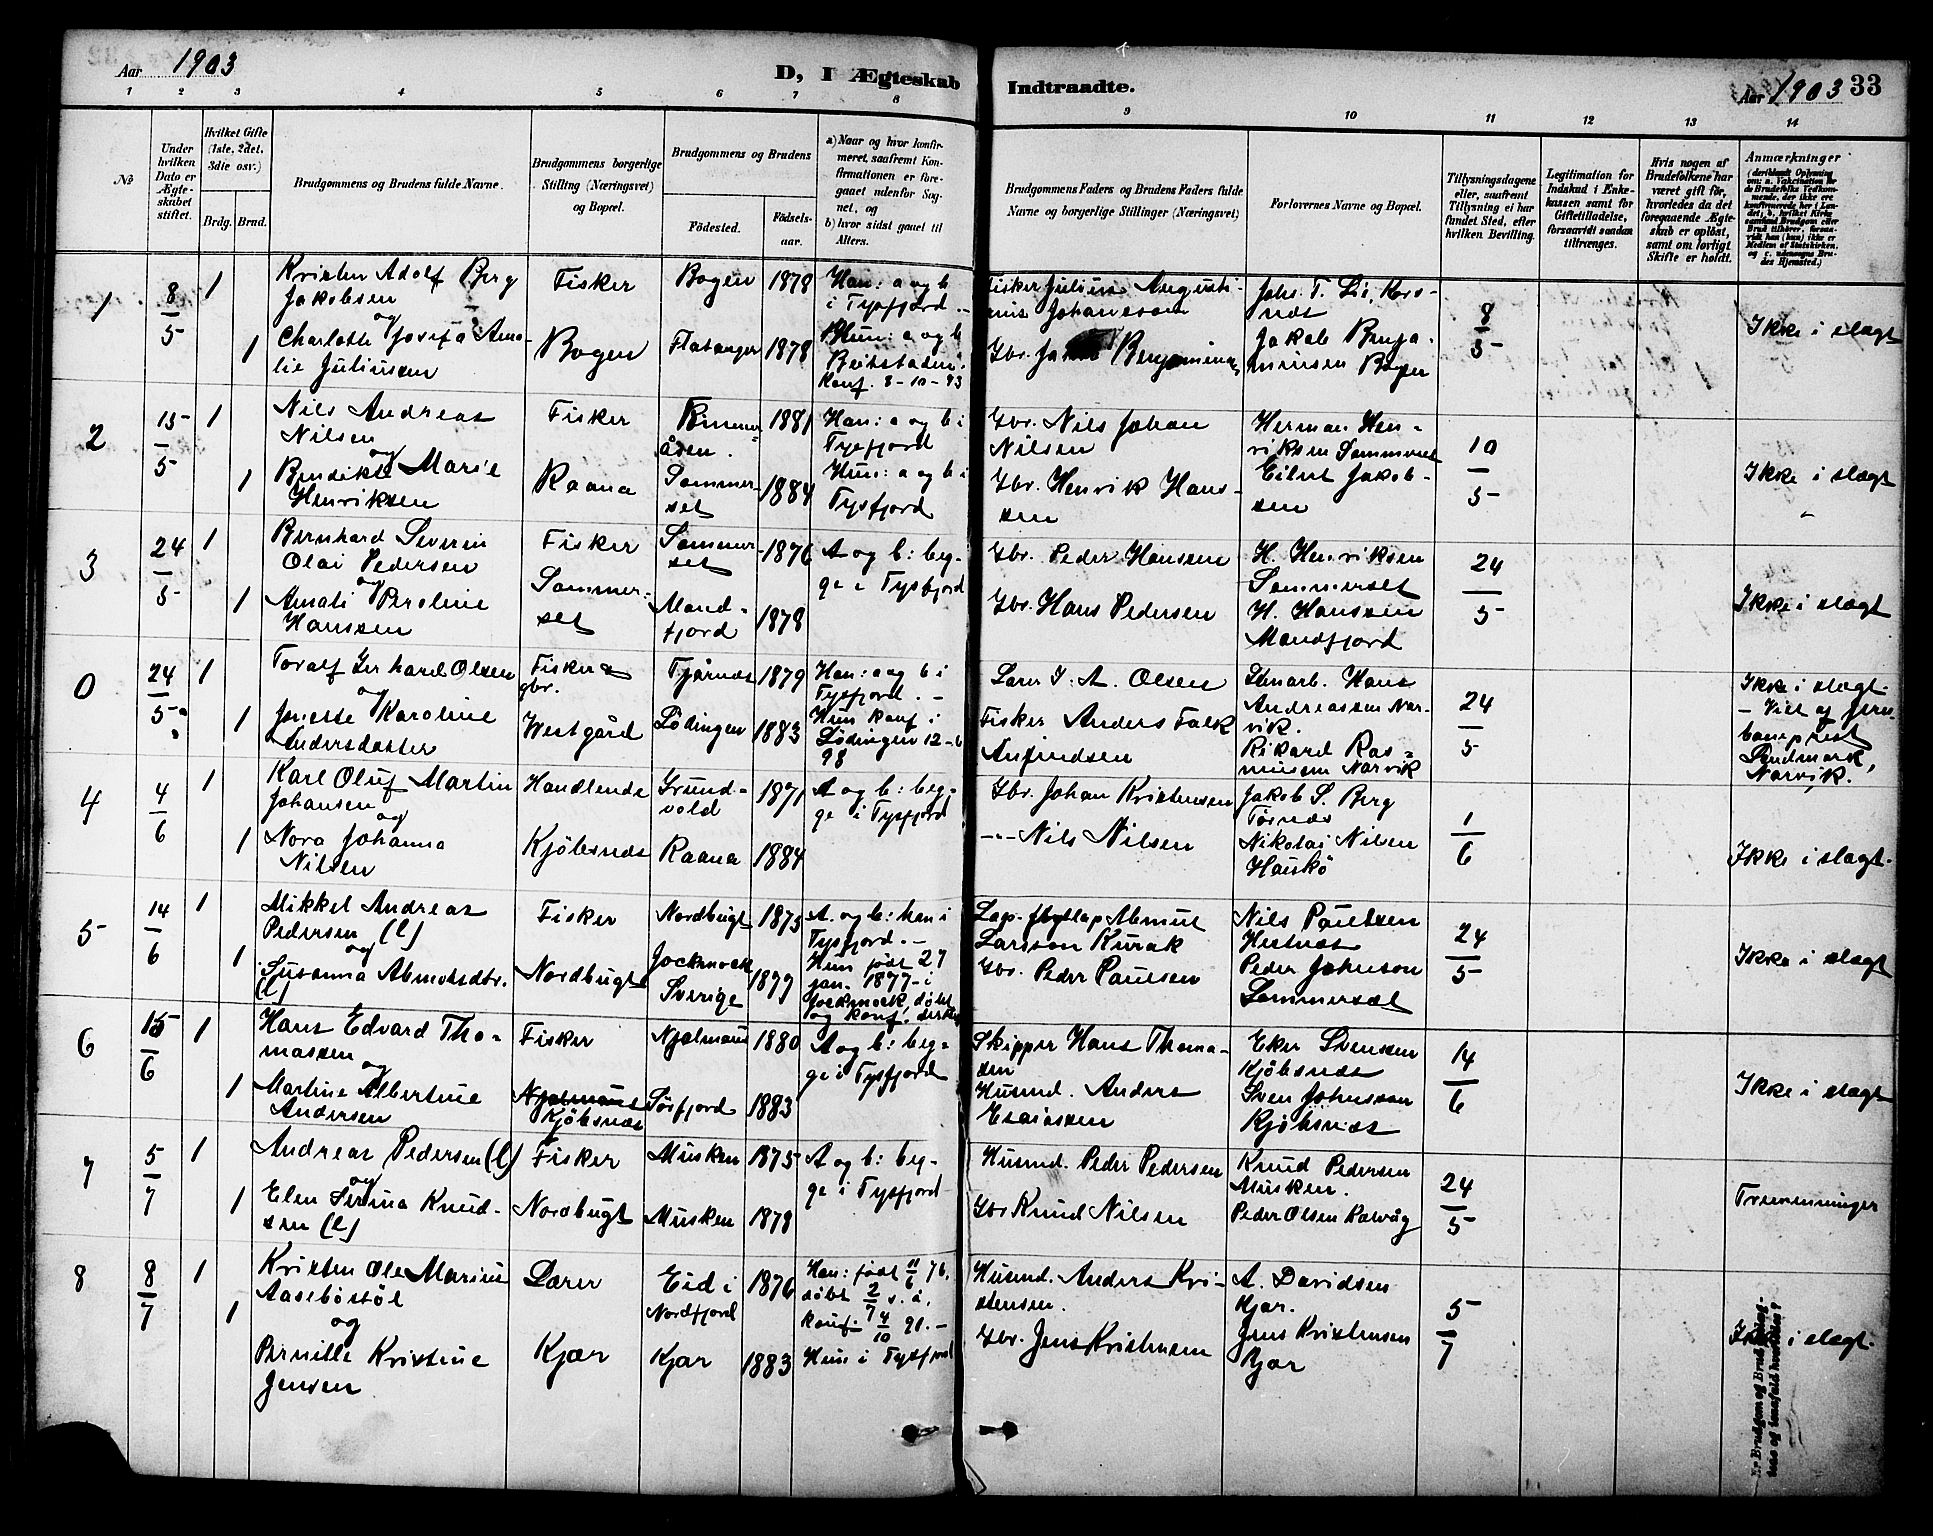 Aar 1903
D, I Ægteskab Indtraadte.
Aar 1903 33
1 2 3 4 5 6 7 8 9 10 11 12 13 14
№
Under hvilken Dato er Ægteskabet stiftet.
Hvilket Gifte (1ste, 2det, 3die osv.)
Brdg. Brud.
Brudgommens og Brudens fulde Navne.
Brudgommens borgerlige Stilling (Næringsvei) og Bopæl.
Brudgommens og Brudens
Fødested. Fødselsaar.
a) Naar og hvor konfirmeret, saafremt Konfirmationen er foregaaet udenfor Sognet, og
b) hvor sidst gaaet til Alters.
Brudgommens Faders og Brudens Faders fulde Navne og borgerlige Stillinger (Næringsvei)
Forlovernes Navne og Bopæl.
Tillysningsdagene eller, saafremt Tillysning ei har fundet Sted, efter hvilken Bevilling.
Legitimation for Indskud i Enkekassen samt for Giftetilladelse, forsaavidt saadan tiltrænges.
Hvis nogen af Brudefolkene har været gift før, hvorledes da det foregaaende Ægteskab er opløst, samt om lovligt Skifte er holdt.
Anmærkninger
1 8/5 1 Kristen Adolf Berg Jakobsen Fisker Bogen 1878 Han: a og b i Tysfjord. Fisker Julius Johanesen Johs. T. Li, Korsnes 8/5 Ikke i slægt
og
1 Charlotte Josefa Amalie Juliussen Bogen Flatanger 1878 Hun: a og b Beitstaden: konf. 8-10-93 Gbr. Benjaminsen Jakob Benjaminsen Bogen
2 15/5 1 Nils Andreas Nilsen Fisker 1881 Han: a og b i Tysfjord Gbr. Nils Johan Nilsen Herman Henriksen Sommerset 10/5 Ikke i slægt
og
1 Bendikte Marie Henriksen Raana Sommerset 1884 Hun: a og b i Tysfjord Gbr. Henrik Hanssen Eilert Jakobsen
3 24/5 1 Bernhard Severin Olai Pedersen Fisker Sommerset 1876 A og b: begge i Tysfjord Gbr. Peder Hanssen H. Henriksen Sommerset 24/5 Ikke i slægt
og
1 Amali Peroline Hanssen Sommerset Mandfjord 1878 Gbr. Hans Pedersen H. Hanssen Mandfjord
0 24/5 1 Toralf Gerhard Olsen Fisker & gbr. Tjårnes 1879 Han: a og b i Tysfjord. - Lærer I. A. Olsen Hans Andreassen Narvik. 24/5 Ikke i slægt. - Viet af jernbaneprest Sandmark, Narvik.
og
1 Jonette Karoline Andersdatter Westgård Lødingen 1883 Hun konf i Lødingen 12-6 98 Fisker Anders Falk Anfindsen Rikard Rasmussen Narvik
4 4/6 1 Karl Oluf Martin Johansen Handlende Grundvold 1871 A og b: begge i Tysfjord Gbr. Johan Kristensen Jakob S. Berg Tørnes 1/6 Ikke i slægt.
og
1 Nora Johanna Nilsen Kjöbsnes Raana 1884 -"- Nils Nilsen Nikolai Nilsen Haukö
5 14/6 1 Mikkel Andreas Pedersen (l) Fisker Nordbugt 1873 A. og b: han i Tysfjord. - Larsson Kurak Nils Paulsen Hestnes 24/5 Ikke i slægt
og
1 Susanna Abmutsdtr. (l) Nordbugt Jockmock Sverige 1877 Hun født 27 jan. 1877 - i Jockmock, døbt og konf. Gbr. Peder Paulsen Peder Johnson Sommersæt
6 15/6 1 Hans Edvard Thomassen Fisker Njalmaas 1880 A og b: begge i Tysfjord Skipper Hans Thomassen Eker Svensen Kjöbsnes 14/6 Ikke i slægt
og
1 Martine Albertine Andersen Kjöbsnes Sörfjord 1883 Husmd. Anders Esaiassen Sven Johnsson Kjöbsnes
7 5/7 1 Andreas Pedersen (l) Fisker Musken 1875 A og b: begge i Tysfjord Husmd. Peder Pedersen Knud Pedersen Musken. 24/5 Tremenninger
og
1 Elen Serina Knudsen (l) Nordbugt Musken 1878 Gbr Knud Nilsen Peder Olsen Kalvåg
8 8/7 1 Kristen Ole Marius Aaseböstöl Lærer Eid i Nordfjord 1876 Han: født 11/6 76, döbt 2/7 s. å. konf. 4/10 91. - Husmd. Anders Kristensen. A. Davidsen Kjær. 5/7 Ikke i slægt.
og
1 Pernille Kristine Jensen Kjær Kjær 1883 Hun i Tysfjord Gbr. Jens Kristensen Jens Kristensen Kjær